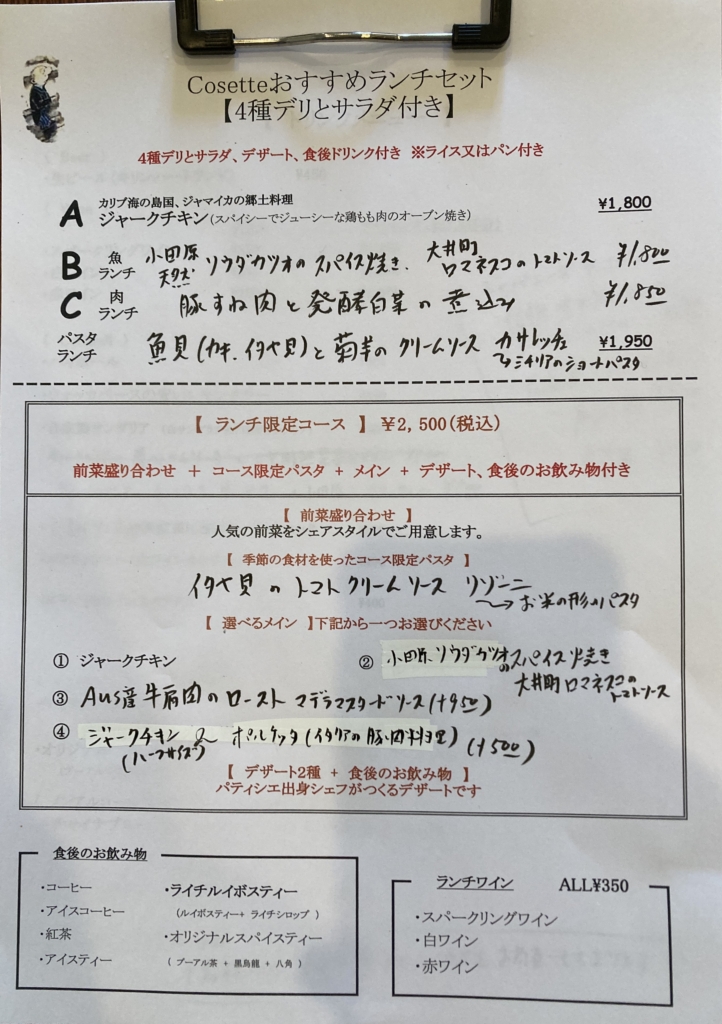 Cosetteおすすめランチセット
【4種デリとサラダ付き】
4種デリとサラダ、デザート、食後ドリンク付き ※ライス又はパン付き
カリブ海の島国、ジャマイカの郷土料理
A ジャークチキン(スパイシーでジューシーな鶏もも肉のオーブン焼き) ¥1,800
B 魚ランチ 小田原天然 ソウダガツオのスパイス焼き、大井町ロマネスコのトマトソース ¥1,800
C 肉ランチ 豚すね肉と発酵白菜の煮込み ¥1,850
パスタランチ 魚貝(カキ、イタヤ貝)と菊芋のクリームソース カサレッチェ ¥1,950
→シチリアのショートパスタ
【 ランチ限定コース 】 ¥2,500(税込)
前菜盛り合わせ + コース限定パスタ + メイン + デザート、食後のお飲み物付き
【 前菜盛り合わせ 】
人気の前菜をシェアスタイルでご用意します。
【 季節の食材を使ったコース限定パスタ 】
イタヤ貝のトマトクリームソース リゾーニ
→お米の形のパスタ
【 選べるメイン 】下記から一つお選びください
① ジャークチキン
② 小田原、ソウダガツオのスパイス焼き
大井町ロマネスコのトマトソース
③ Aus産牛肩肉のロースト マデラマスタードソース(+950)
④ ジャークチキン(ハーフサイズ) & ポルケッタ(イタリアの豚肉料理) (+500)
【 デザート2種 + 食後のお飲み物 】
パティシエ出身シェフがつくるデザートです
食後のお飲み物
・コーヒー
・アイスコーヒー
・紅茶
・アイスティー
・ライチルイボスティー
(ルイボスティー+ ライチシロップ )
・オリジナルスパイスティー
( プーアル茶 + 黒烏龍 + 八角 )
ランチワイン ALL¥350
・スパークリングワイン
・白ワイン
・赤ワイン